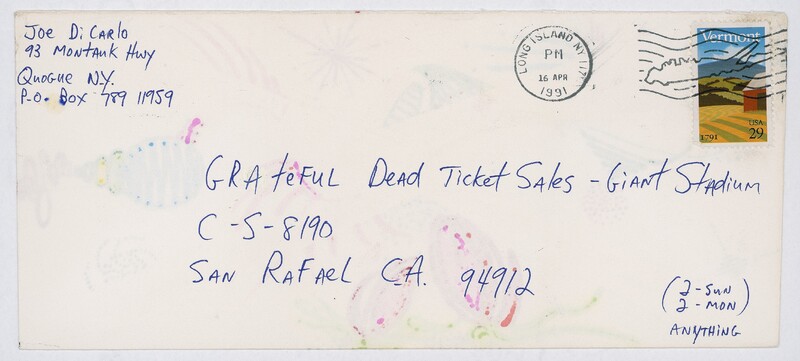 Joe DiCarlo
93 Montauk Hwy
Quogue N.Y.
P.O. Box 789 11959
LONG ISLAND NY 117
PM
16 APR
1991
Vermont
1791
USA
29
GRAteFUL Dead Ticket Sales - Giant Stadium
C-S-8190
SAN RAFAel CA. 94912
(2-SUN
2-MON)
ANYTHING